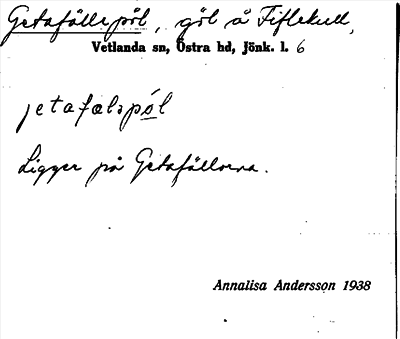 Getafällepöl, göl å Fiflekull,
Vetlanda sn, Östra hd, Jönk. l. 6
jetafæləpól
Ligger på Getafällorna.
Annalisa Andersson 1938